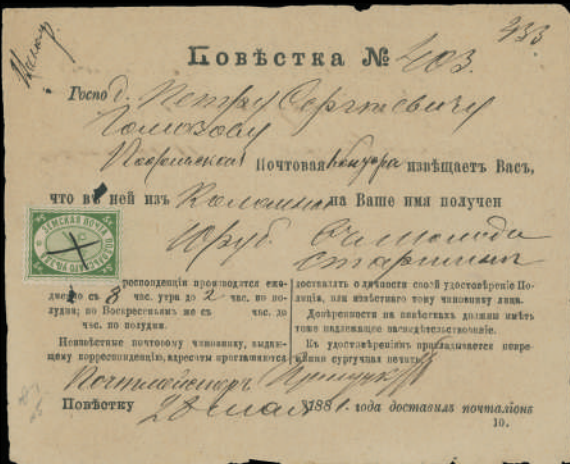 333
Повѣстка № 403.
Господ. Петру Сергѣевичу
Почтовая контора извѣщаетъ Васъ,
что въ ней изъ Коломны на Ваше имя получен
10 руб.
Старшины
ЗЕМСКАЯ ПОЧТА
респонденціи производятся еже-
дневно съ 8 час. утра до 2 час. по по-
лудни; по Воскресеньямъ же съ час. до
час. по полудни.
Неизвѣстные почтовому чиновнику, выдаю-
щему корреспонденцію, адресаты приглашаются
доставлять о личности своей удостовѣреніе По-
лиціи, или извѣстнаго тому чиновнику лица.
Довѣренности на повѣсткахъ должны имѣть
тоже надлежащее засвидѣтельствованіе.
Къ удостовѣреніямъ прикладывается непре-
мѣнно сургучная печать.
Почтмейстеръ
Повѣстку 28 мая 1881. года доставилъ почталіонъ
10.